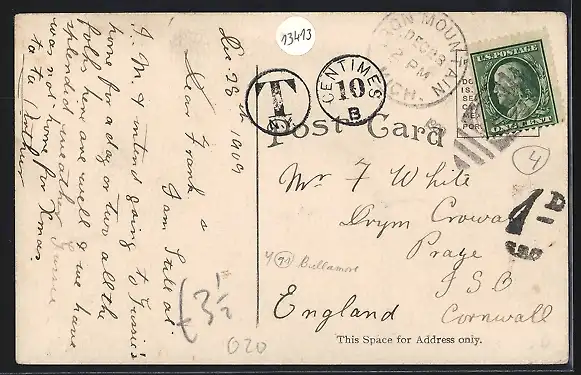 13413
IRON MOUNTAIN
DEC 28
2 PM
MICH.
U.S. POSTAGE
ONE CENT
T
N.Y.
CENTIMES
10
B
Post Card
4
1D
Dec 28th 1909
Dear Frank
I am still at
I. M. I intend going to Jinnie's
home for a day or two all the
folks here are well & we have
splendid weather Jinnie
was not home for Xmas
ta ta Brother
Mr F White
Drym Crowan
Praze
Cornwall
England
4 (91)
3 1/2
020
This Space for Address only.